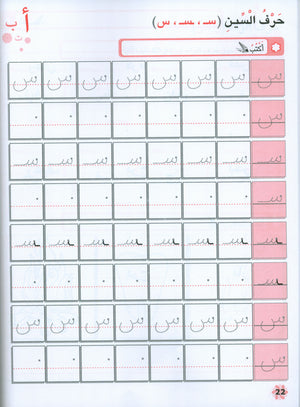 حَرْفُ السِّينِ (سـ ، ـسـ ، س)
أ ب ت
أَكْتُبُ
س س س س س س س س
س
سـ سـ سـ سـ سـ سـ سـ سـ
سـ
ـسـ ـسـ ـسـ ـسـ ـسـ ـسـ ـسـ ـسـ
ـسـ
س س س س س س س س
س
22